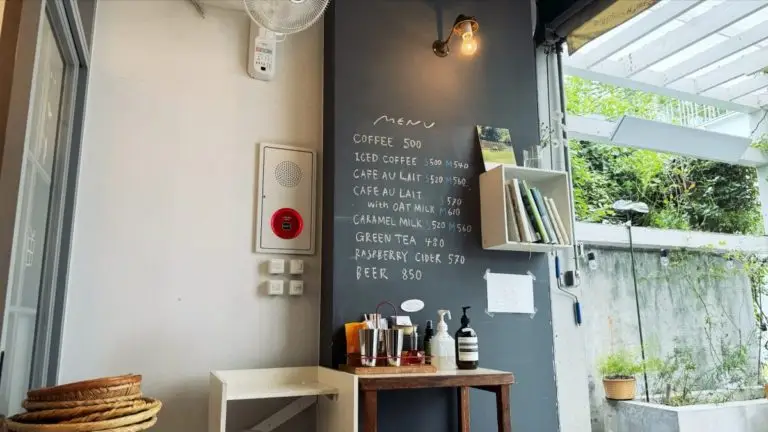 MENU
COFFEE 500
ICED COFFEE S500 M540
CAFE AU LAIT S520 M560
CAFE AU LAIT S570
with OAT MILK M610
CARAMEL MILK S520 M560
GREEN TEA 480
RASPBERRY CIDER 570
BEER 850